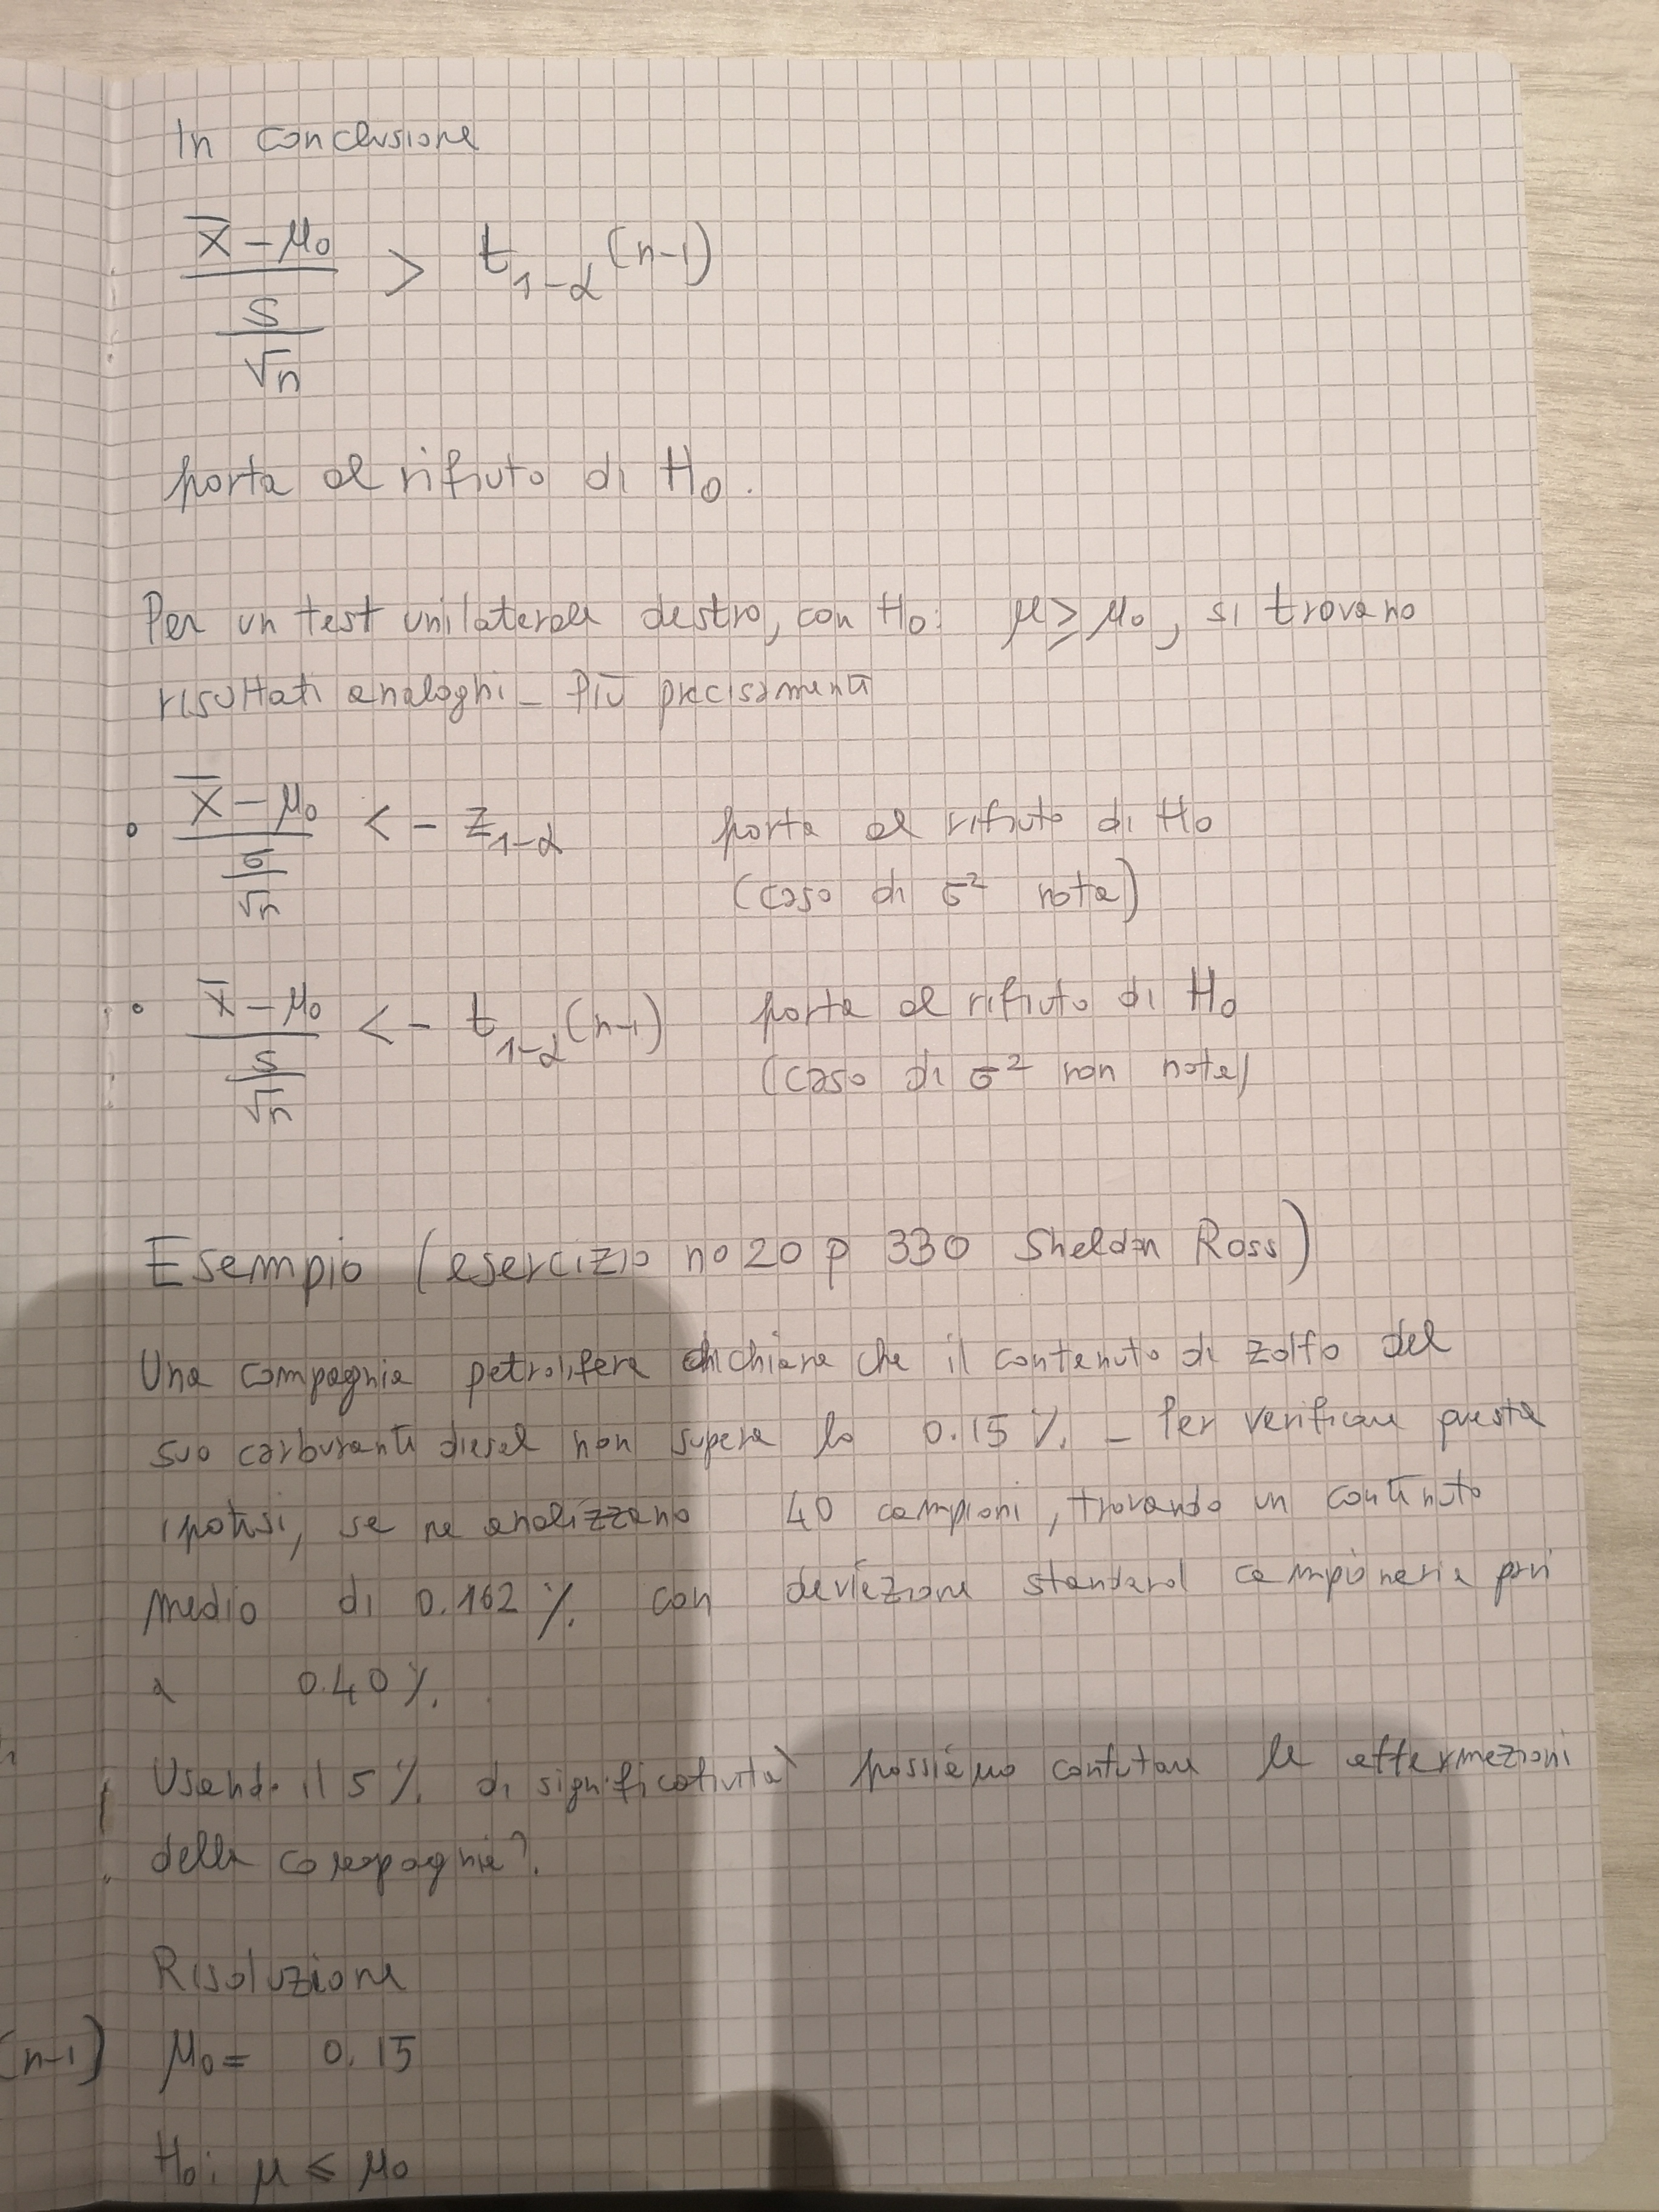 In conclusione
x̄ - μ₀ / (S / √n) > t₁₋α (n-1)
porta al rifiuto di H₀.
Per un test unilaterale destro, con H₀: μ ≥ μ₀, si trovano
risultati analoghi. Più precisamente
• x̄ - μ₀ / (σ / √n) < - z₁₋α porta al rifiuto di H₀
(caso di σ² nota)
• x̄ - μ₀ / (S / √n) < - t₁₋α (n-1) porta al rifiuto di H₀
(caso di σ² non nota)
Esempio (esercizio no 20 p 330 Sheldon Ross)
Una compagnia petrolifera dichiara che il contenuto di zolfo del
suo carburante diesel non supera lo 0.15 %. - Per verificare questa
ipotesi, se ne analizzano 40 campioni, trovando un contenuto
medio di 0.162 % con deviazione standard campionaria pari
a 0.40 %.
Usando il 5 % di significatività possiamo confutare le affermazioni
della compagnia?
Risoluzione
(n-1) μ₀ = 0.15
H₀: μ ≤ μ₀